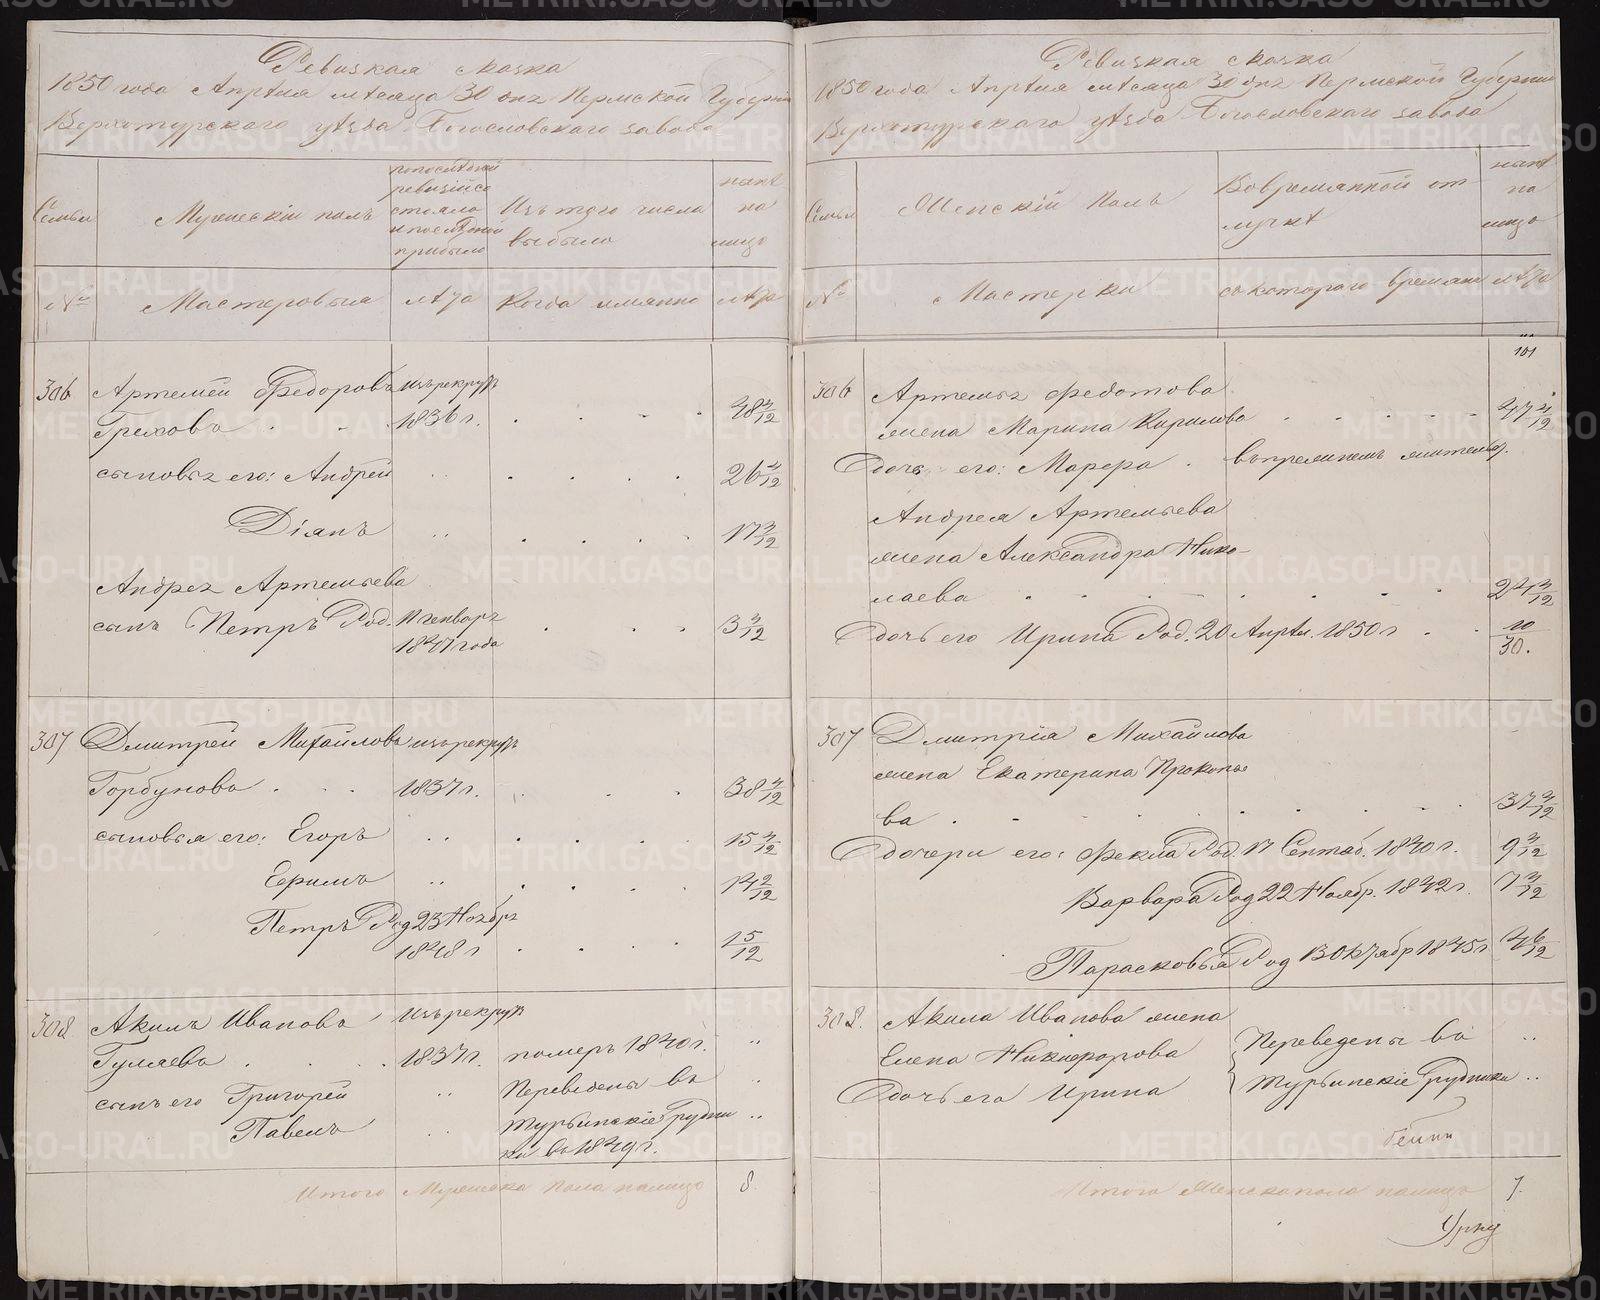 Ревизкая сказка
1850 года Апрѣля мѣсяца 30 дня Пермской Губерніи
Верхотурскаго уѣзда Богословскаго завода
Семьи
Мужескій полъ
по последней
ревизіи со
стояло
и после оной
прибыло
Изъ того числа
выбыло
нынѣ
на
лицо
№
Мастеровыя
лѣта
Когда имянно
лѣта
306
Артемей Федоровъ изъ рекрутъ
Греховъ
1836 г.
48 3/12
сыновья его: Андрей
26 3/12
Діянъ
17 3/12
Андрея Артемьева
сынъ Петръ Род.
Генваря
1847 года
3 3/12
307
Дмитрей Михайловъ изъ рекрутъ
Горбуновъ
1837 г.
38 3/12
сыновья его: Егоръ
15 3/12
Ефимъ
14 2/12
Петръ Род 23 Ноября
1848 г
1 5/12
308
Акимъ Ивановъ изъ рекрутъ
Гуляевъ
1837 г.
померъ 1840 г.
сынъ его Григорей
Переведены въ
Павелъ
Турьинскіе Рудни
ки въ 1849 г.
Итого Мужеска пола налицо 8
Ревизкая сказка
1850 года Апрѣля мѣсяца 30 дня Пермской Губерніи
Верхотурскаго уѣзда Богословскаго завода
Семьи
Женскій Полъ
Во временной от
лучкѣ
нынѣ
на
лицо
№
Мастерки
съ котораго времени
лѣта
101
306
Артемья Федотова
жена Марина Кирилова
47 3/12
Дочь его: Марфа
Андрея Артемьева
жена Александра Нико-
лаева
24 3/12
Дочь его Ирина Род. 20 Апрѣл. 1850 г
10/30.
307
Дмитрія Михайлова
жена Екатерина Прокопье
ва
37 3/12
Дочери его: Фекла Род. 17 Сентяб. 1840 г.
9 3/12
Варвара Род 22 Ноябр. 1842 г.
7 3/12
Парасковья Род 13 Октября 1845 г
4 6/12
308.
Акима Иванова жена
Елена Никифорова
Переведены въ
Дочь его Ирина
Турьинскіе Рудники
Итого Женска пола налицо 7.